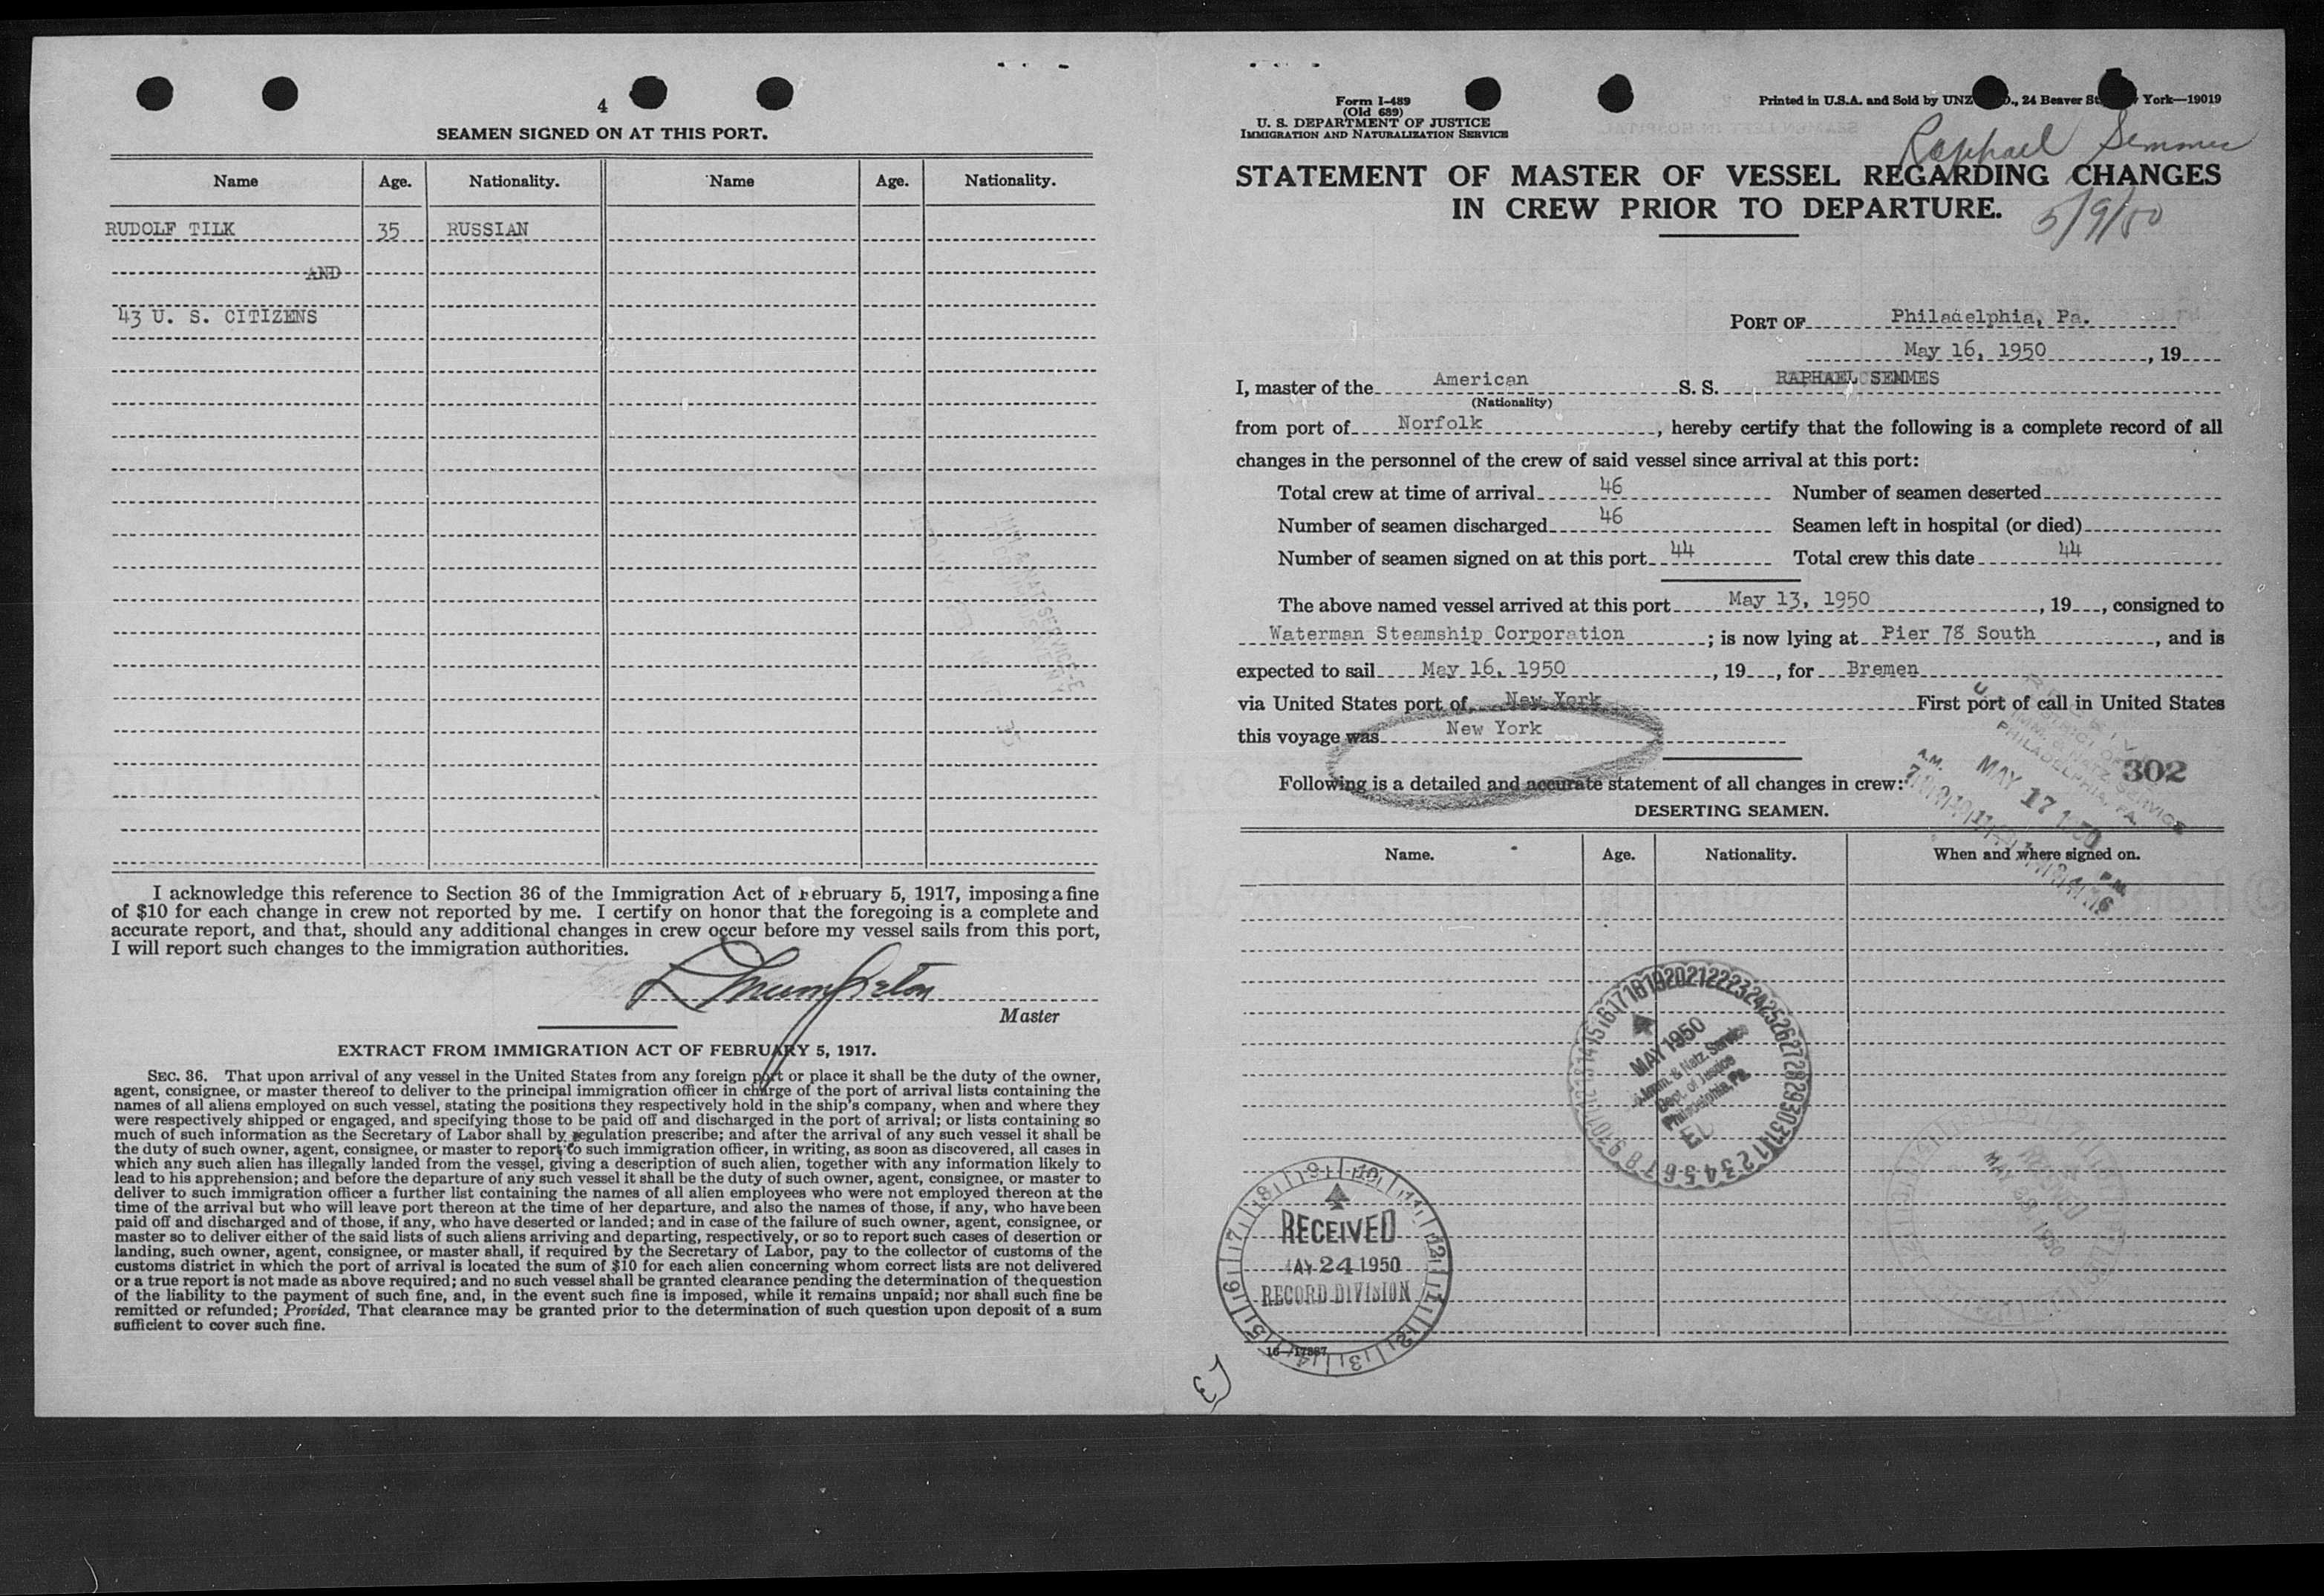 4
SEAMEN SIGNED ON AT THIS PORT.
Name Age. Nationality. Name Age. Nationality.
RUDOLF TILK 35 RUSSIAN
AND
43 U. S. CITIZENS
I acknowledge this reference to Section 36 of the Immigration Act of February 5, 1917, imposing a fine
of $10 for each change in crew not reported by me. I certify on honor that the foregoing is a complete and
accurate report, and that, should any additional changes in crew occur before my vessel sails from this port,
I will report such changes to the immigration authorities.
Master
EXTRACT FROM IMMIGRATION ACT OF FEBRUARY 5, 1917.
SEC. 36. That upon arrival of any vessel in the United States from any foreign port or place it shall be the duty of the owner,
agent, consignee, or master thereof to deliver to the principal immigration officer in charge of the port of arrival lists containing the
names of all aliens employed on such vessel, stating the positions they respectively hold in the ship's company, when and where they
were respectively shipped or engaged, and specifying those to be paid off and discharged in the port of arrival; or lists containing so
much of such information as the Secretary of Labor shall by regulation prescribe; and after the arrival of any such vessel it shall be
the duty of such owner, agent, consignee, or master to report to such immigration officer, in writing, as soon as discovered, all cases in
which any such alien has illegally landed from the vessel, giving a description of such alien, together with any information likely to
lead to his apprehension; and before the departure of any such vessel it shall be the duty of such owner, agent, consignee, or master to
deliver to such immigration officer a further list containing the names of all alien employees who were not employed thereon at the
time of the arrival but who will leave port thereon at the time of her departure, and also the names of those, if any, who have been
paid off and discharged and of those, if any, who have deserted or landed; and in case of the failure of such owner, agent, consignee, or
master so to deliver either of the said lists of such aliens arriving and departing, respectively, or so to report such cases of desertion or
landing, such owner, agent, consignee, or master shall, if required by the Secretary of Labor, pay to the collector of customs of the
customs district in which the port of arrival is located the sum of $10 for each alien concerning whom correct lists are not delivered
or a true report is not made as above required; and no such vessel shall be granted clearance pending the determination of the question
of the liability to the payment of such fine, and, in the event such fine is imposed, while it remains unpaid; nor shall such fine be
remitted or refunded; Provided, That clearance may be granted prior to the determination of such question upon deposit of a sum
sufficient to cover such fine.
Form I-489
(Old 689)
U. S. DEPARTMENT OF JUSTICE
IMMIGRATION AND NATURALIZATION SERVICE
Printed in U.S.A. and Sold by UNZ 24 Beaver York—19019
Raphael Semmes
STATEMENT OF MASTER OF VESSEL REGARDING CHANGES
IN CREW PRIOR TO DEPARTURE.
5/9/50
PORT OF Philadelphia, Pa.
May 16, 1950, 19
I, master of the American S. S. RAPHAEL SEMMES
(Nationality)
from port of Norfolk, hereby certify that the following is a complete record of all
changes in the personnel of the crew of said vessel since arrival at this port:
Total crew at time of arrival 46 Number of seamen deserted
Number of seamen discharged 46 Seamen left in hospital (or died)
Number of seamen signed on at this port 44 Total crew this date 44
The above named vessel arrived at this port May 13, 1950, 19, consigned to
Waterman Steamship Corporation; is now lying at Pier 78 South, and is
expected to sail May 16, 1950, 19, for Bremen
via United States port of New York First port of call in United States
this voyage was New York
Following is a detailed and accurate statement of all changes in crew:
302
A.M. MAY 17 1950 P.M.
PHILADELPHIA, PA.
DESERTING SEAMEN.
Name. Age. Nationality. When and where signed on.
MAY 1950
Imm. & Natz. Service
Dept. of Justice
Philadelphia, Pa.
RECEIVED
MAY 24 1950
RECORD DIVISION
RECEIVED
16—17387